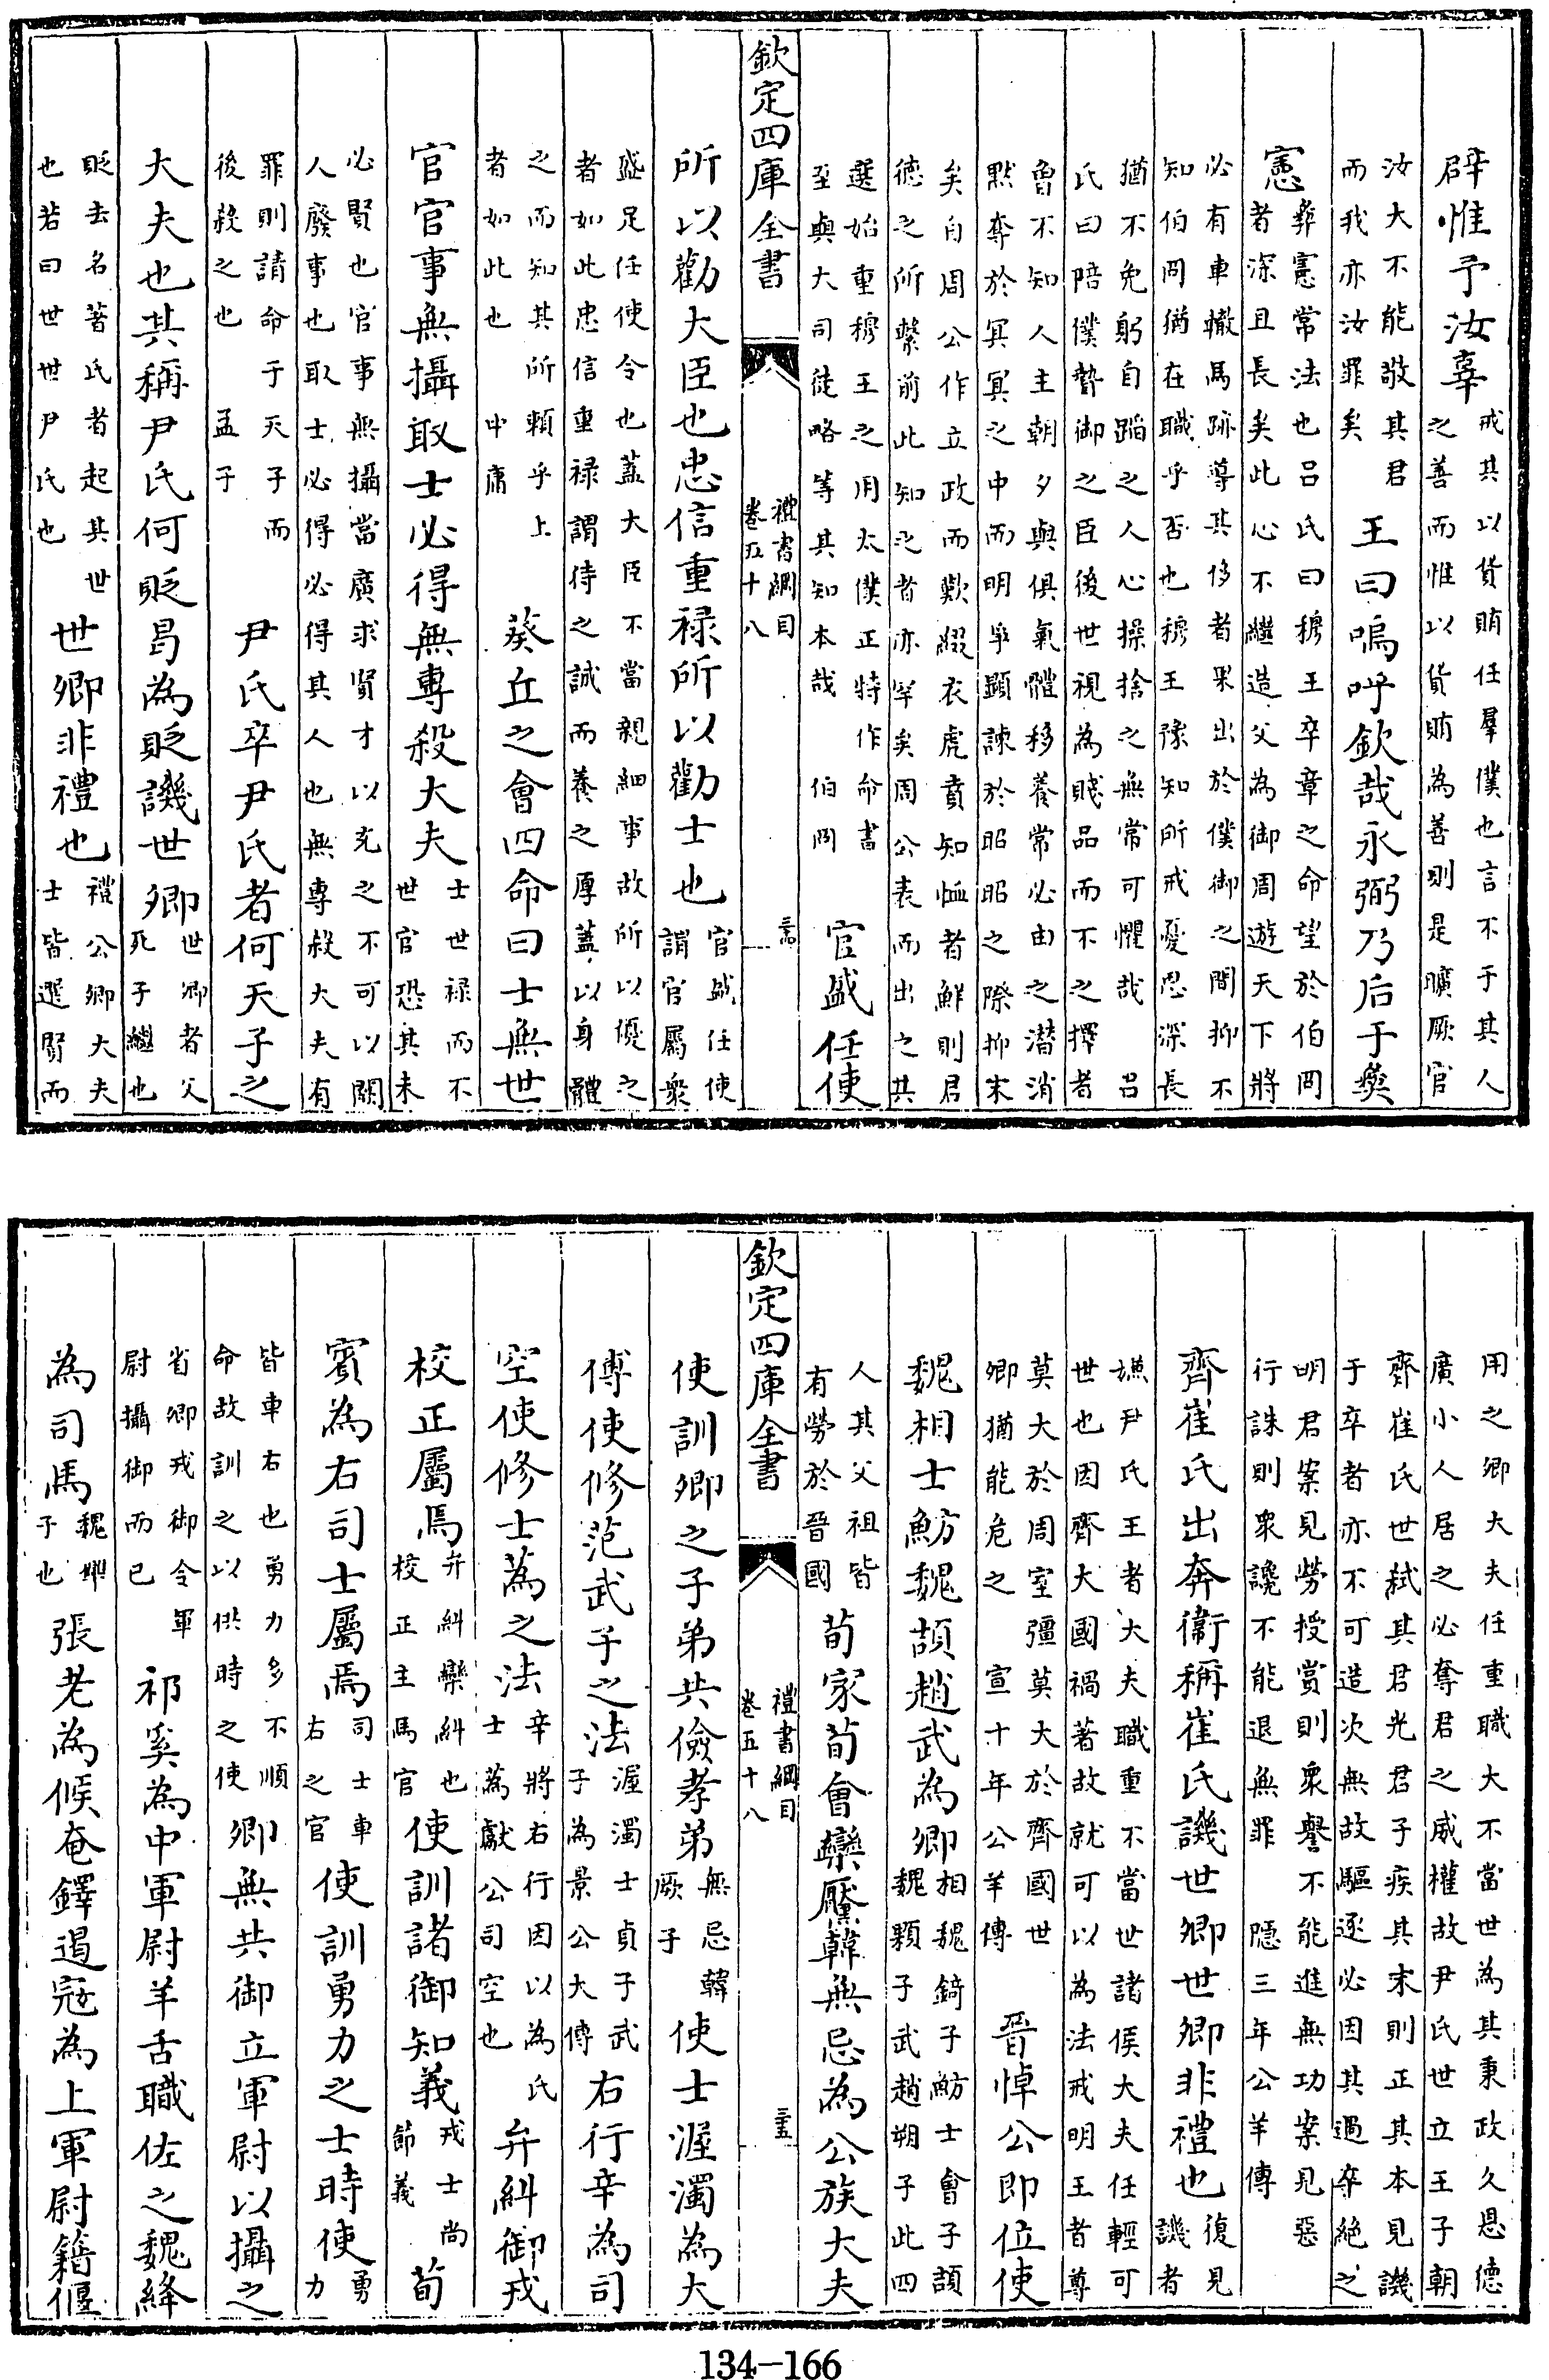 辟惟予汝辜戒其以貨賄任羣僕也言不于其人之善而惟以貨賄為善則是曠厥官
汝大不能敬其君而我亦汝罪矣王曰嗚呼欽哉永弼乃后于彝
憲彝憲常法也呂氏曰穆王卒章之命望於伯冏者深且長矣此心不繼造父為御周遊天下將
必有車轍馬跡導其侈者果出於僕御之間抑不知伯冏猶在職乎否也穆王豫知所戒憂思深長
猶不免躬自蹈之人心操捨之無常可懼哉呂氏曰陪僕贄御之臣後世視為賤品而不之擇者
曾不知人主朝夕與俱氣體移養常必由之潛消默奪於冥冥之中而明爭顯諫於昭昭之際抑末
矣自周公作立政而歎綴衣虎賁知恤者鮮則君德之所繫前此知之者亦罕矣周公表而出之其
選始重穆王之用太僕正特作命書至與大司徒略等其知本哉伯冏官盛任使
欽定四庫全書 禮書綱目 卷五十八 三四
所以勸大臣也忠信重祿所以勸士也官盛任使謂官屬衆
盛足任使令也蓋大臣不當親細事故所以優之者如此忠信重祿謂待之誠而養之厚蓋以身體
之而知其所賴乎上者如此也中庸葵丘之會四命曰士無世
官官事無攝取士必得無專殺大夫士世祿而不世官恐其未
必賢也官事無攝當廣求賢才以充之不可以闕人廢事也取士必得必得其人也無專殺大夫有
罪則請命于天子而後殺之也孟子尹氏卒尹氏者何天子之
大夫也其稱尹氏何貶曷為貶譏世卿世卿者父死子繼也
貶去名著氏者起其世也若曰世世尹氏也世卿非禮也禮公卿大夫士皆選賢而
用之卿大夫任重職大不當世為其秉政久恩德廣小人居之必奪君之威權故尹氏世立王子朝
齊崔氏世弒其君光君子疾其末則正其本見譏于卒者亦不可造次無故驅逐必因其過卒絕之
明君案見勞授賞則衆譽不能進無功案見惡行誅則衆讒不能退無罪隱三年公羊傳
齊崔氏出奔衞稱崔氏譏世卿世卿非禮也復見譏者
嫌尹氏王者大夫職重不當世諸侯大夫任輕可世也因齊大國禍著故就可以為法戒明王者尊
莫大於周室彊莫大於齊國世卿猶能危之宣十年公羊傳晉悼公即位使
魏相士魴魏頡趙武為卿相魏錡子魴士會子頡魏顆子武趙朔子此四
人其父祖皆有勞於晉國荀家荀會欒黶韓無忌為公族大夫
欽定四庫全書 禮書綱目 卷五十八 三五
使訓卿之子弟共儉孝弟無忌韓厥子使士渥濁為大
傅使修范武子之法渥濁士貞子武子為景公大傅右行辛為司
空使修士蒍之法辛將右行因以為氏士蒍獻公司空也弁糾御戎
校正屬焉弁糾欒糾也校正主馬官使訓諸御知義戎士尚節義荀
賓為右司士屬焉司士車右之官使訓勇力之士時使勇力
皆車右也勇力多不順命故訓之以供時之使卿無共御立軍尉以攝之
省卿戎御令軍尉攝御而已祁奚為中軍尉羊舌職佐之魏絳
為司馬魏犨子也張老為候奄鐸遏寇為上軍尉籍偃
134-166